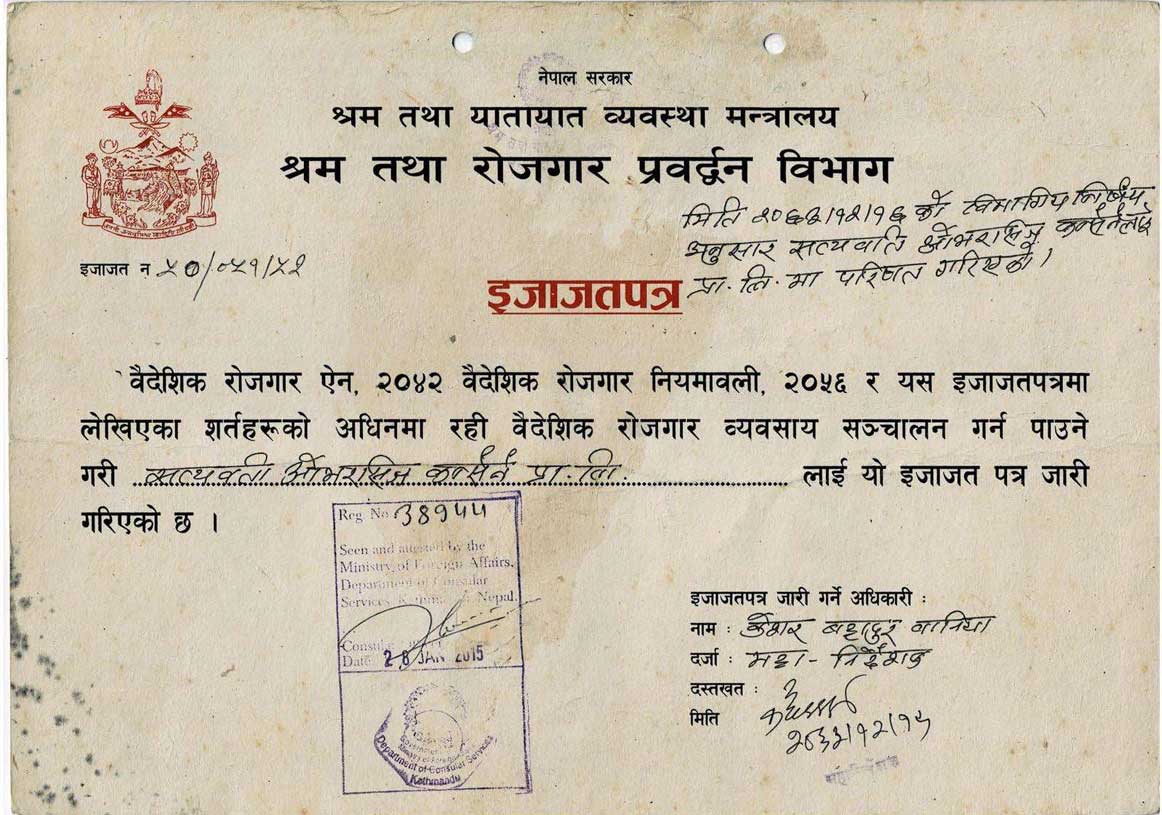 नेपाल सरकार
श्रम तथा यातायात व्यवस्था मन्त्रालय
श्रम तथा रोजगार प्रवर्द्वन विभाग
मिति २०६३।१२।१६ को विभागिय निर्णय
अनुसार सत्यवति ओभरसिज कन्सर्नलाई
प्रा. लि. मा परिणत गरिएको।
इजाजत न ५०/०५१/५२
इजाजतपत्र
वैदेशिक रोजगार ऐन, २०४२ वैदेशिक रोजगार नियमावली, २०५६ र यस इजाजतपत्रमा
लेखिएका शर्तहरूको अधिनमा रही वैदेशिक रोजगार व्यवसाय सञ्चालन गर्न पाउने
गरी सत्यवती ओभरसिज कन्सर्न प्रा. लि. लाई यो इजाजत पत्र जारी
गरिएको छ ।
Reg No 38944
Seen and attested by the
Ministry of Foreign Affairs,
Department of Consular
Services Nepal.
Date 28 JAN 2015
Department of Consular Services
Kathmandu
इजाजतपत्र जारी गर्ने अधिकारी :
नाम : केशर बहादुर बानिया
दर्जा : महा-निर्देशक
दस्तखत :
मिति २०६३।१२।१५